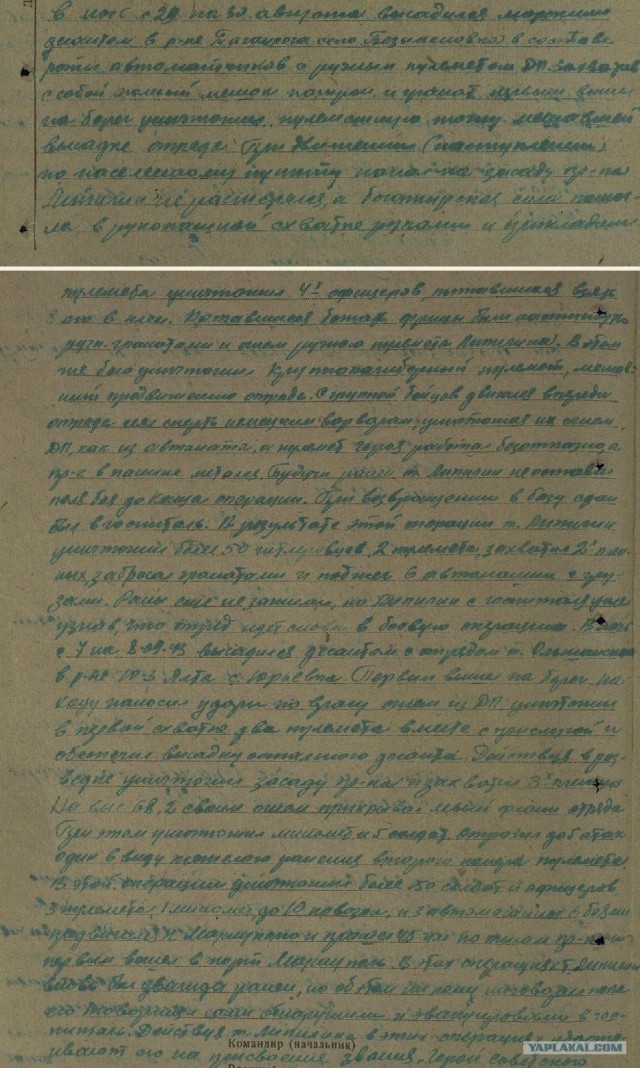 в ночь с 29 на 30 августа высадился морским
десантом в р-не Таганрога село Безымяновка в составе
роты автоматчиков с ручным пулеметом ДП. Захватив
с собой полный мешок патрон и гранат первым вышел
на берег уничтожил пулеметную точку мешавшей
высадке отряда. При движении (наступлении)
по населенному пункту попал на засаду пр-ка
Дипилин не растерялся, а богатырская сила помог-
ла, в рукопашной схватке руками и прикладом
пулемета уничтожил 4х офицеров, пытавшихся взять
его в плен. Пытавшиеся бежать фрицы были настигнуты
ручн. гранатами и огнем ручного пулемета Дипилина. В этом
же бою уничтожил крупнокалиберный пулемет, мешав-
ший продвижению отряда. С группой бойцов двигался впереди
отряда сея смерть немецким варварам, уничтожая их огнем
ДП, как из автомата, а пулемет героя работал безотказно, а
пр-к в панике метался. Будучи ранен т. Дипилин не оставил
поля боя до конца операции. При возвращении в базу сдан
был в госпиталь. В результате этой операции т. Дипилин
уничтожил более 50 гитлеровцев, 2 пулемета, захватил 2х плен-
ных, забросал гранатами и поджег 6 автомашин с гру-
зами. Раны еще не зажили, но Дипилин с госпиталя ушел
узнав, что отряд идет снова в боевую операцию. В ночь
с 7 на 8.09.43 высадился десантом с отрядом т. Ольшанского
в р-не ЮЗ Ялта с. Юрьевка. Первым вышел на берег. На
ходу наносил удары по врагу огнем из ДП уничтожил
в первой схватке два пулемета вместе с прислугой и
обеспечил высадку остального десанта. Действуя в раз-
ведке уничтожил засаду пр-ка и захватил 3х пленных
На выс 68,2 своим огнем прикрывал левый фланг отряда
При этом уничтожил миномет и 5 солдат. Отразил до 5 атак
один в виду тяжелого ранения второго номера пулемета
В этой операции уничтожил более 50 солдат и офицеров
3 пулемета, 1 миномет, до 10 повозок, и 3 автомашины с боями
продвигался к Мариуполю и прошел 45 км по тылам пр-ка и
первым вошел в порт Мариуполь. В этих операциях т. Дипилин
вновь был дважды ранен, но об этом никому не говорил пока
его товарищи сами обнаружили и эвакуировали в гос-
питаль. Действуя т. Дипилина в этих операциях удоста-
ивают его на присвоения звания "Герой Советского
Командир (начальник)
YAPLAKAL.COM